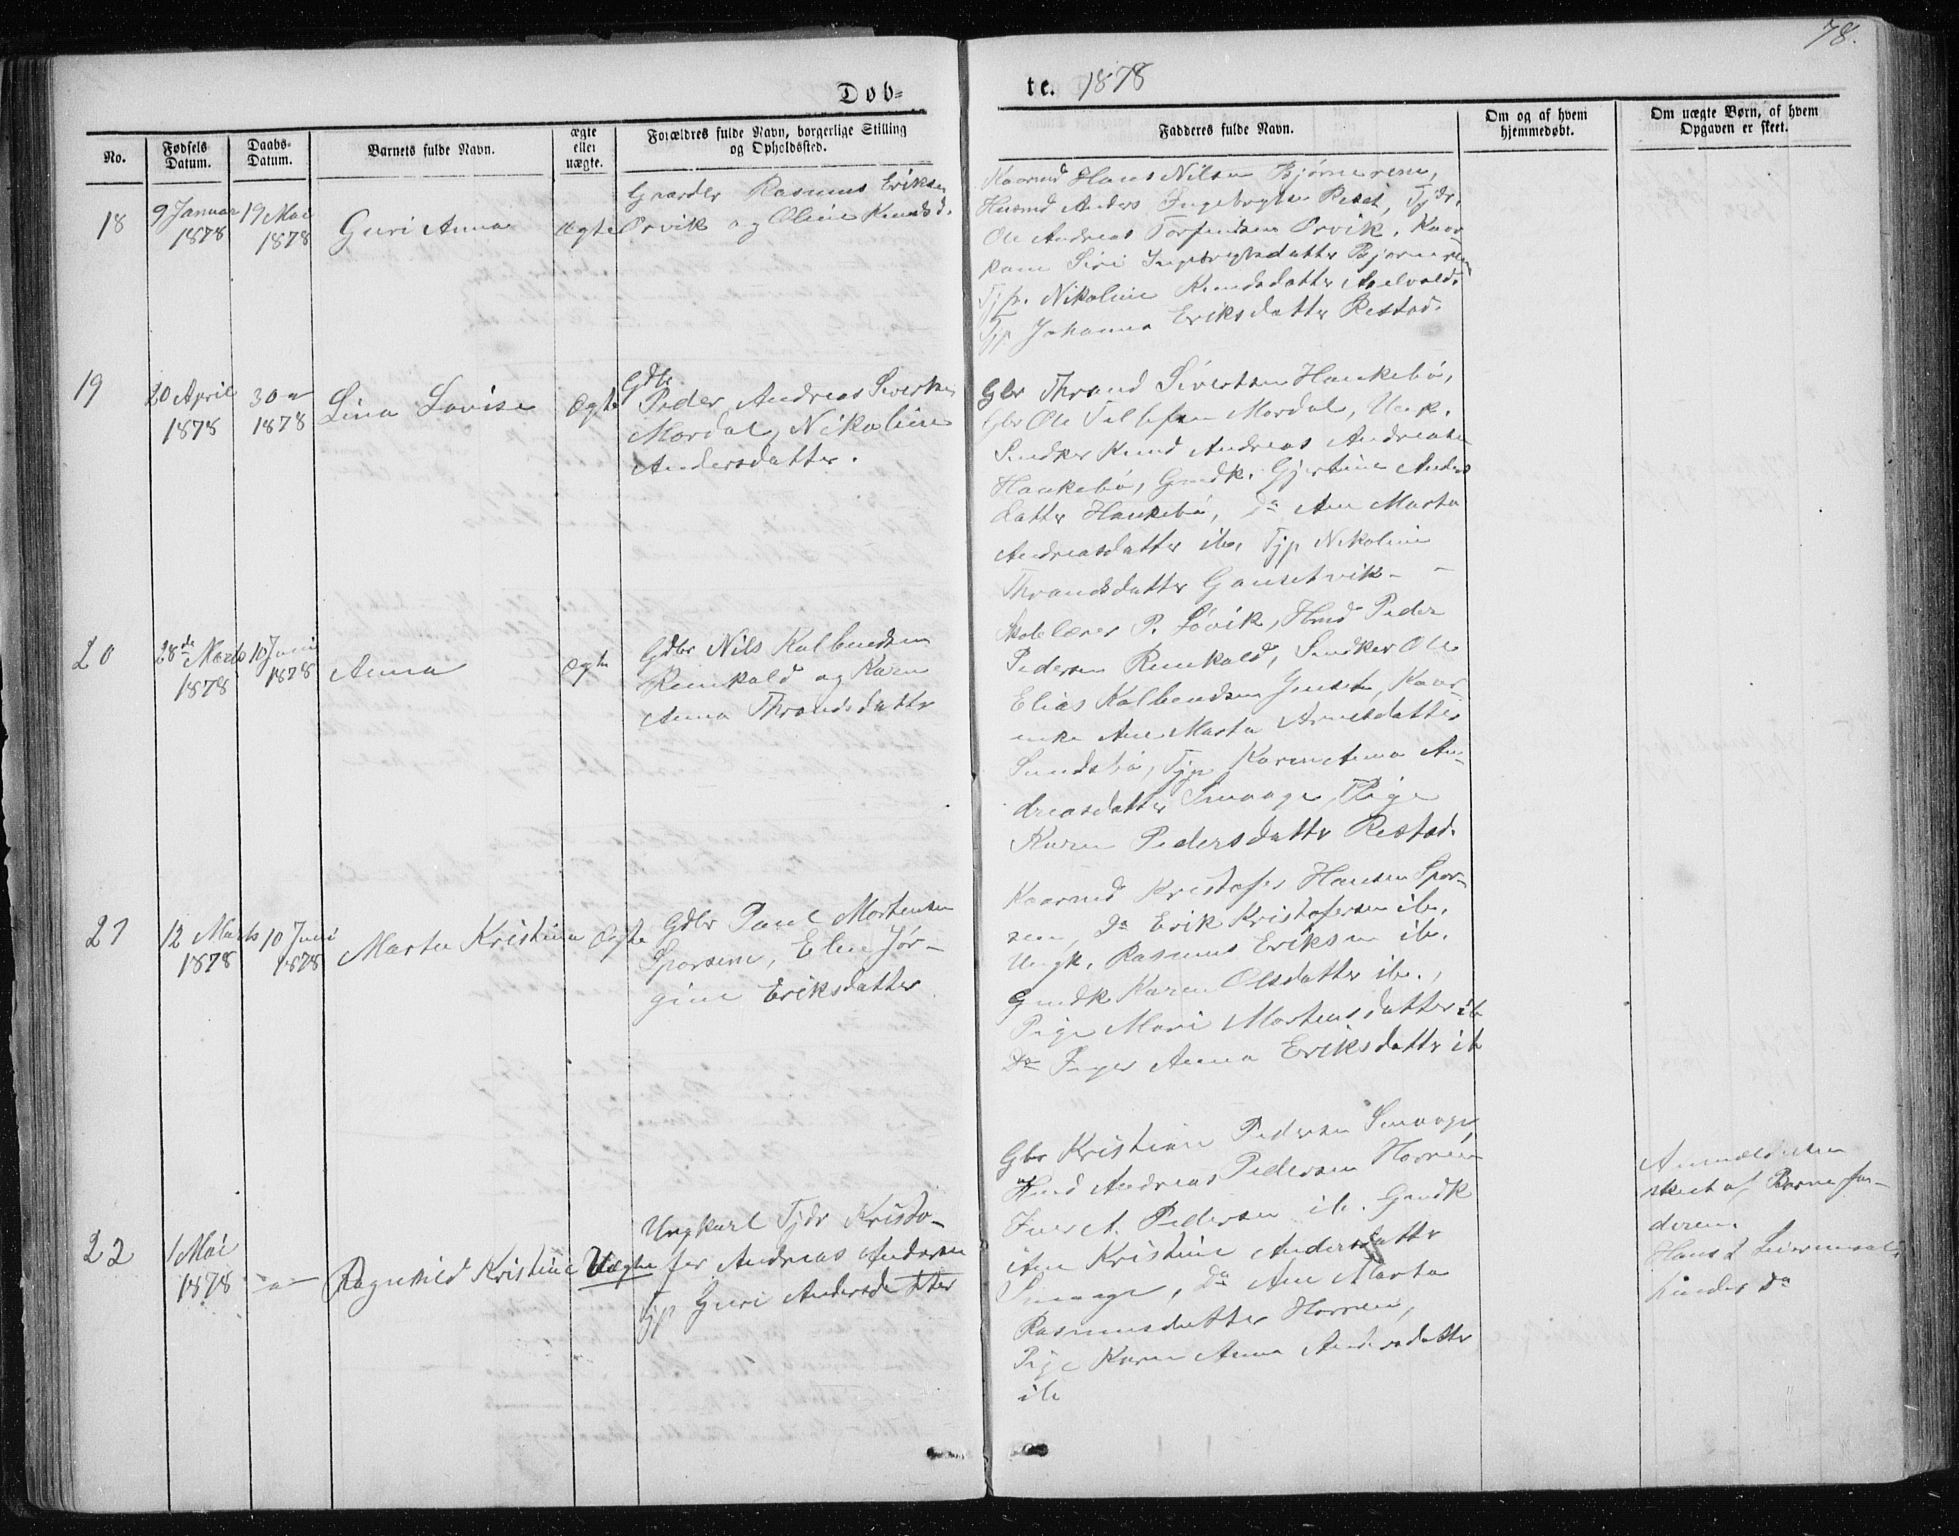 78.
Døb-
te. 1878
No.
Fødsels Datum.
Daabs-Datum.
Barnets fulde Navn.
ægte eller uægte.
Forældres fulde Navn, borgerlige Stilling og Opholdssted.
Fadderes fulde Navn.
Om og af hvem hjemmedøbt.
Om uægte Børn, af hvem Opgaven er skeet.
18
9 Januar
1878
19 Mai
1878
Guri Anna
Ægte
Gaardbr Rasmus Eriksen
Orvik og Oline Knudsd.
Kaarmd Hans Nilsen Bjørnerem,
Husmd Anders Ingebrigtsen Restad, Tjdr.
Ole Andreas Torfindsen Orvik, Kaar-
kone Siri Ingebrigtsdatter Bjørnerem
Tjp. Nikoline Knudsdatter
Tjp Johanna Eriksdatter Restad.
19
20 April
1878
30
1878
Lina Lovise
Ægte
Gdbr
Peder Andreas Sivertsen
Mordal, Nikoline
Andersdatter.
Gbr Thrond Sivertsen Haukebø,
Gbr Ole Tollefsen Mordal, Ungk.
Snedker Knud Andreas Andreasen
Haukebø, Gmdk. Gjertine Anders
datter Haukebø, Do Ane Marta
Andreasdatter ib. Tjp Nikoline
Throndsdatter Gausetvik-
20
28de Marts
1878
10 Juni
1878
Anna
Ægte
Gdbr Nils Kolbendsen
Renkald og Karen
Anna Throndsdatter
Skolelærer P. Løvik, Hmd Peder
Pedersen Renkald, Snedker Ole
Elias Kolbendsen Juset, Kaar-
enke Ane Marta Arnesdatter
Sundsbø, Tjp Karen Anna An-
dreasdatter Smaage, Pige
Karen Pedersdatter Restad.
21
12 Marts
1878
10 Juni
1878
Marta Kristina
Ægte
Gdbr Paul Mortensen
Sporsem, Elen Jør-
gine Eriksdatter
Kaarmd Kristofer Hansen Spor-
sem, Do Erik Kristofersen ib.
Ungk. Rasmus Eriksen ib.
Gmdk Karen Olsdatter ib.,
Pige Mari Mortensdatter ib
Do Inger Anna Eriksdatter ib
22
1 Mai
1878
-"-
Ragnhild Kristine
Uægte
Ungkarl Tjdr Kristo-
fer Andreas Andersen
Tjp Guri Andersdatter
Gbr Kristian Pedersen Smaage,
Hmd Andreas Pedersen Horrem
Ivert Pedersen ib. Gmdk
Ane Kristine Andersdatter
Smaage, Do Ane Marta
Rasmusdatter Horrem,
Pige Karen Anna Andersdatter
ib
Anmeldelsen
skeet af Barnefa-
deren.
Hans 2 Leiermaal,
hendes Do